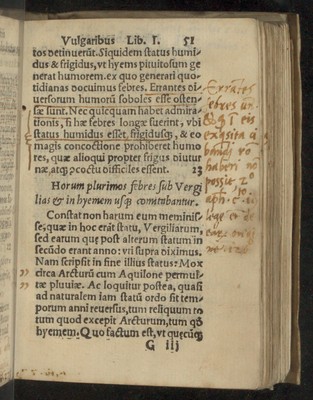 Vulgaribus Lib. I. 51
tos detinuerūt. Siquidem status humi-
dus & frigidus, vt hyems pituitosum ge
nerat humorem. ex quo generari quo-
tidianas docuimus febres. Errantes di-
uersorum humorū soboles esse osten-
sæ sunt. Nec quicquam habet admira-
tionis, si hæ febres longæ fuerint, vbi
status humidus esset, frigidusq́;, & eo
magis concoctione prohiberet humo
res, quæ alioqui propter frigus diutur
næ, atq́; coctu difficiles essent. 23
Horum plurimos febres sub Vergi
lias & in hyemem usq; comitabantur.
Constat non harum eum meminis-
se, quæ in hoc erāt statu, Vergiliarum,
sed earum quę post alterum statum in
secūdo erant anno: vti supra diximus.
Nam scripsit in fine illius status: Mox
circa Arcturū cum Aquilone permul-
tæ pluuiæ. Ac loquitur postea, quasi
ad naturalem iam statū ordo sit tem-
porum anni reuersus, tum reliquum to
tum quod excepit Arcturum, tum qđ
hyemem. Quo factum est, vt quęcūq́;
G iij
Errātes
febres